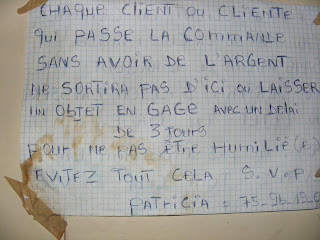 CHAQUE CLIENT OU CLIENTE
QUI PASSE LA COMMANDE
SANS AVOIR DE L'ARGENT
NE SORTIRA PAS D'ICI OU LAISSER
UN OBJET EN GAGE AVEC UN DELAI
DE 3 JOURS
POUR NE PAS ÊTRE HUMILIÉ(E)
EVITEZ TOUT CELA S.V.P
PATRICIA